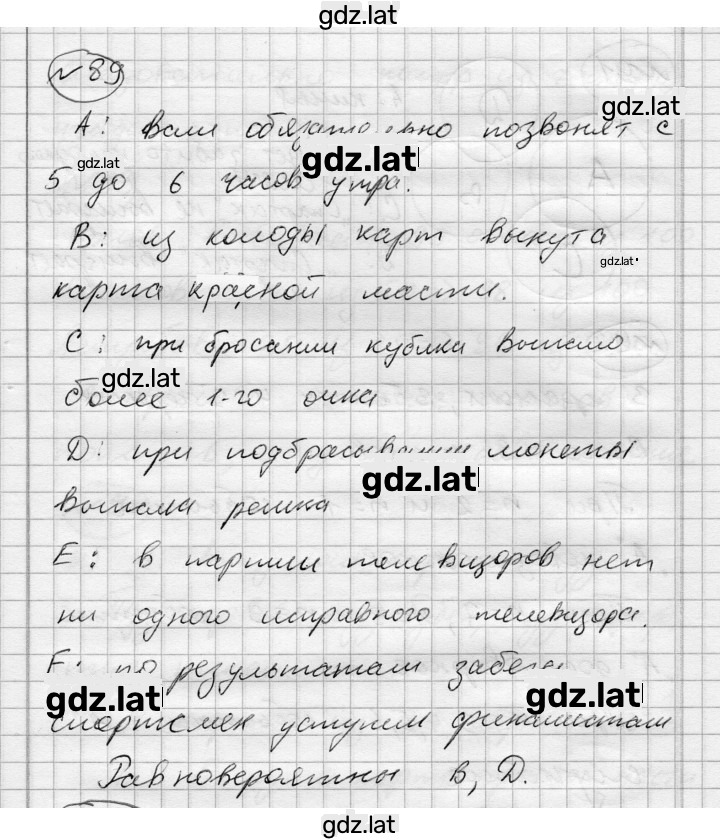 gdz.lat
№ 89
A: Вам обязательно позвонят с
gdz.lat
gdz.lat
gdz.lat
5 до 6 часов утра.
B: из колоды карт вынута
gdz.lat
карта красной масти.
C: при бросании кубика выпало
gdz.lat
более 1-го очка
D: при подбрасывании монеты
gdz.lat
выпала решка
E: в партии телевизоров нет
ни одного исправного телевизора.
F: по результатам забега
gdz.lat
gdz.lat
спортсмен уступит финалистам
Равновероятны B, D.
gdz.lat